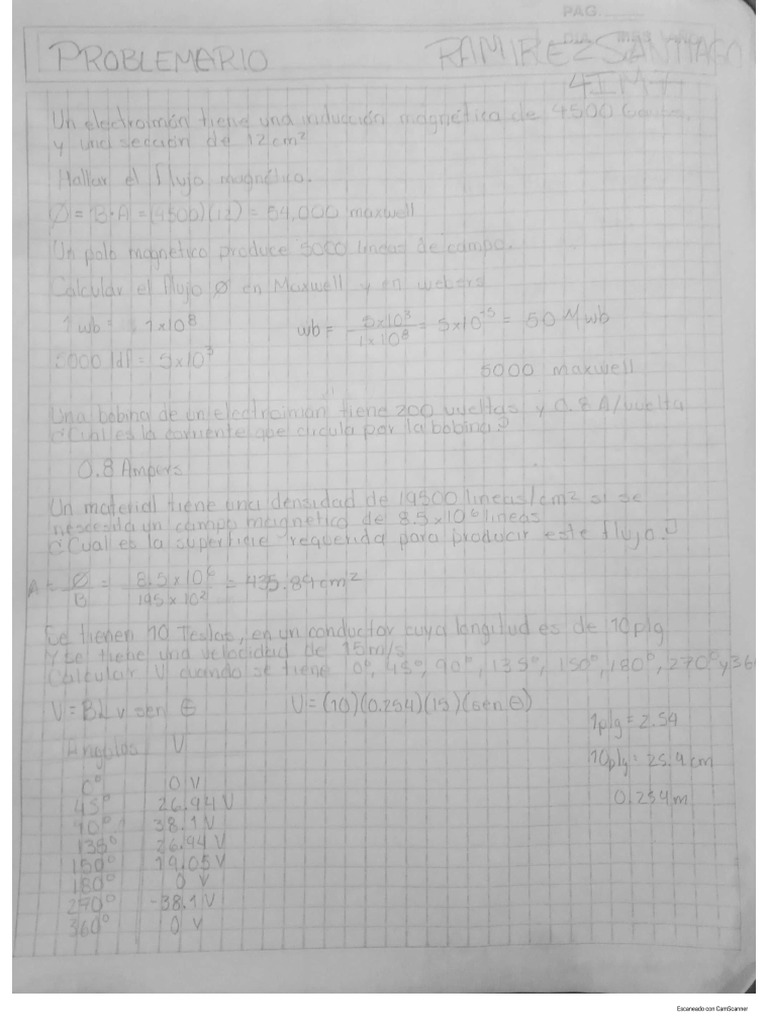 PAG.
PROBLEMARIO RAMIREZ SANTIAGO
4IM7
Un electroimán tiene una inducción magnética de 4500 Gauss.
y una sección de 12cm²
Hallar el flujo magnético.
Ø = B·A = (4500)(12) = 54,000 maxwell
Un polo magnetico produce 5000 lineas de campo.
Calcular el flujo Ø en Maxwell y en webers
1 wb = 1x10⁸ wb = 5x10³/1x10⁸ = 5x10⁻⁵ = 50 Mwb
5000 ldf = 5x10³
5000 maxwell
Una bobina de un electroiman tiene 200 vueltas y 0.8 A/vuelta
¿Cual es la corriente que circula por la bobina?
0.8 Ampers
Un material tiene una densidad de 19500 lineas/cm² si se
necesita un campo magnetico de 8.5x10⁶ lineas
¿Cual es la superficie requerida para producir este flujo?
A = Ø/B = 8.5x10⁶/195x10² = 435.89cm²
Se tienen 10 Teslas, en un conductor cuya longitud es de 10plg
Y se tiene una velocidad de 15m/s
Calcular V cuando se tiene 0°, 45°, 90°, 135°, 150°, 180°, 270° y 36
V = BLv sen θ V = (10)(0.254)(15)(sen θ)
1plg = 2.54
Angulos V
10plg = 25.4cm
0° 0 V
0.254m
45° 26.94 V
90° 38.1 V
135° 26.94 V
150° 19.05 V
180° 0 V
270° -38.1 V
360° 0 V
Escaneado con CamScanner